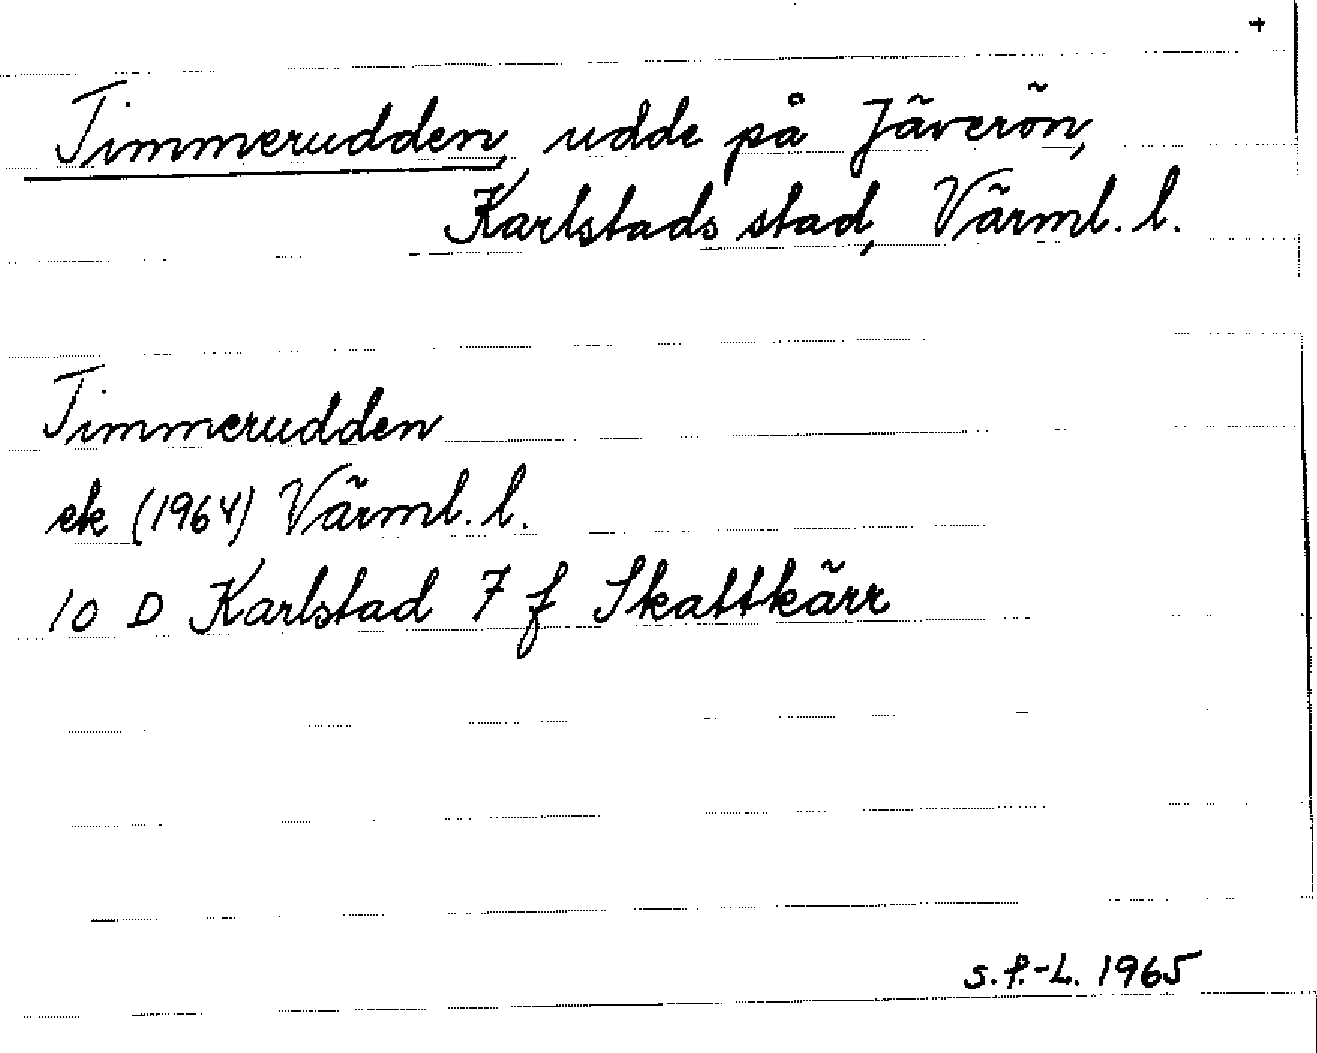 +
Timmerudden, udde på Jäverön,
Karlstads stad, Värml. l.
Timmerudden
ek (1964) Värml. l.
10 D Karlstad 7 f Skattkärr
S. f.-L. 1965